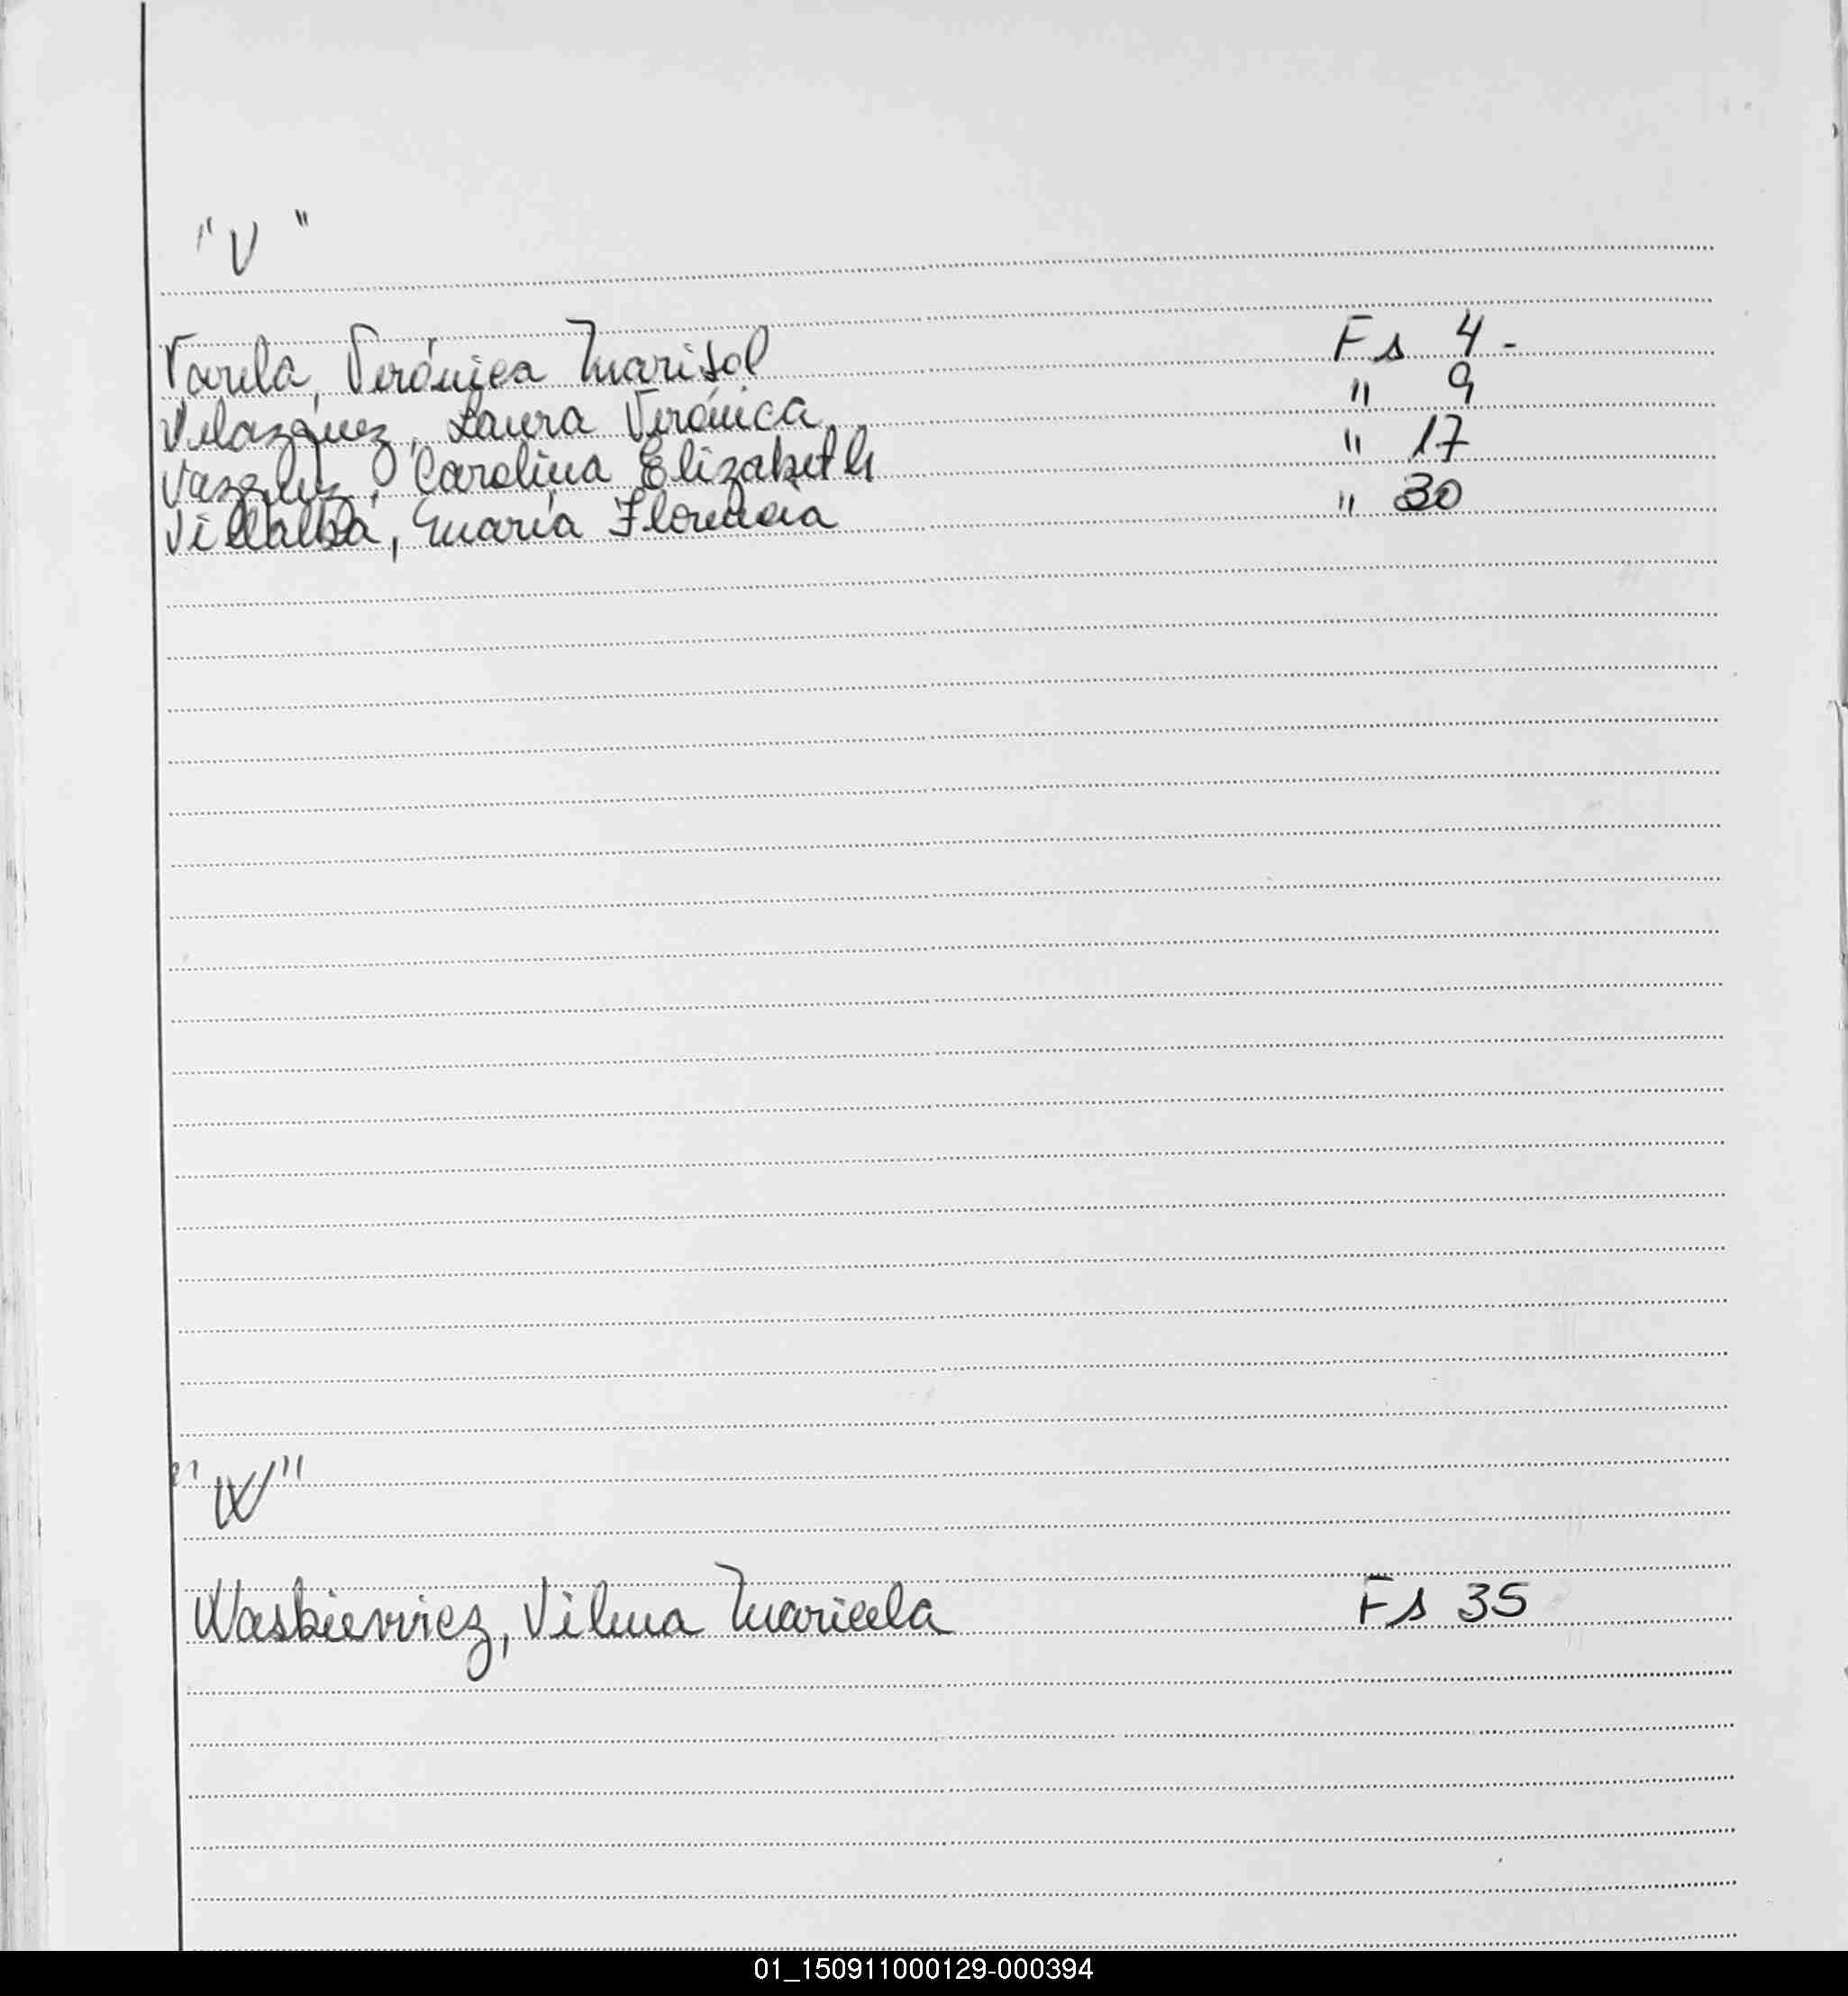 "V"
Varela, Verónica Marisol Fs 4-
Velazquez, Laura Verónica " 9
Vazquez, Carolina Elizabeth " 17
Villalba, María Florencia " 30
"W"
Waskievvicz, Vilma Maricela Fs 35
01_150911000129-000394